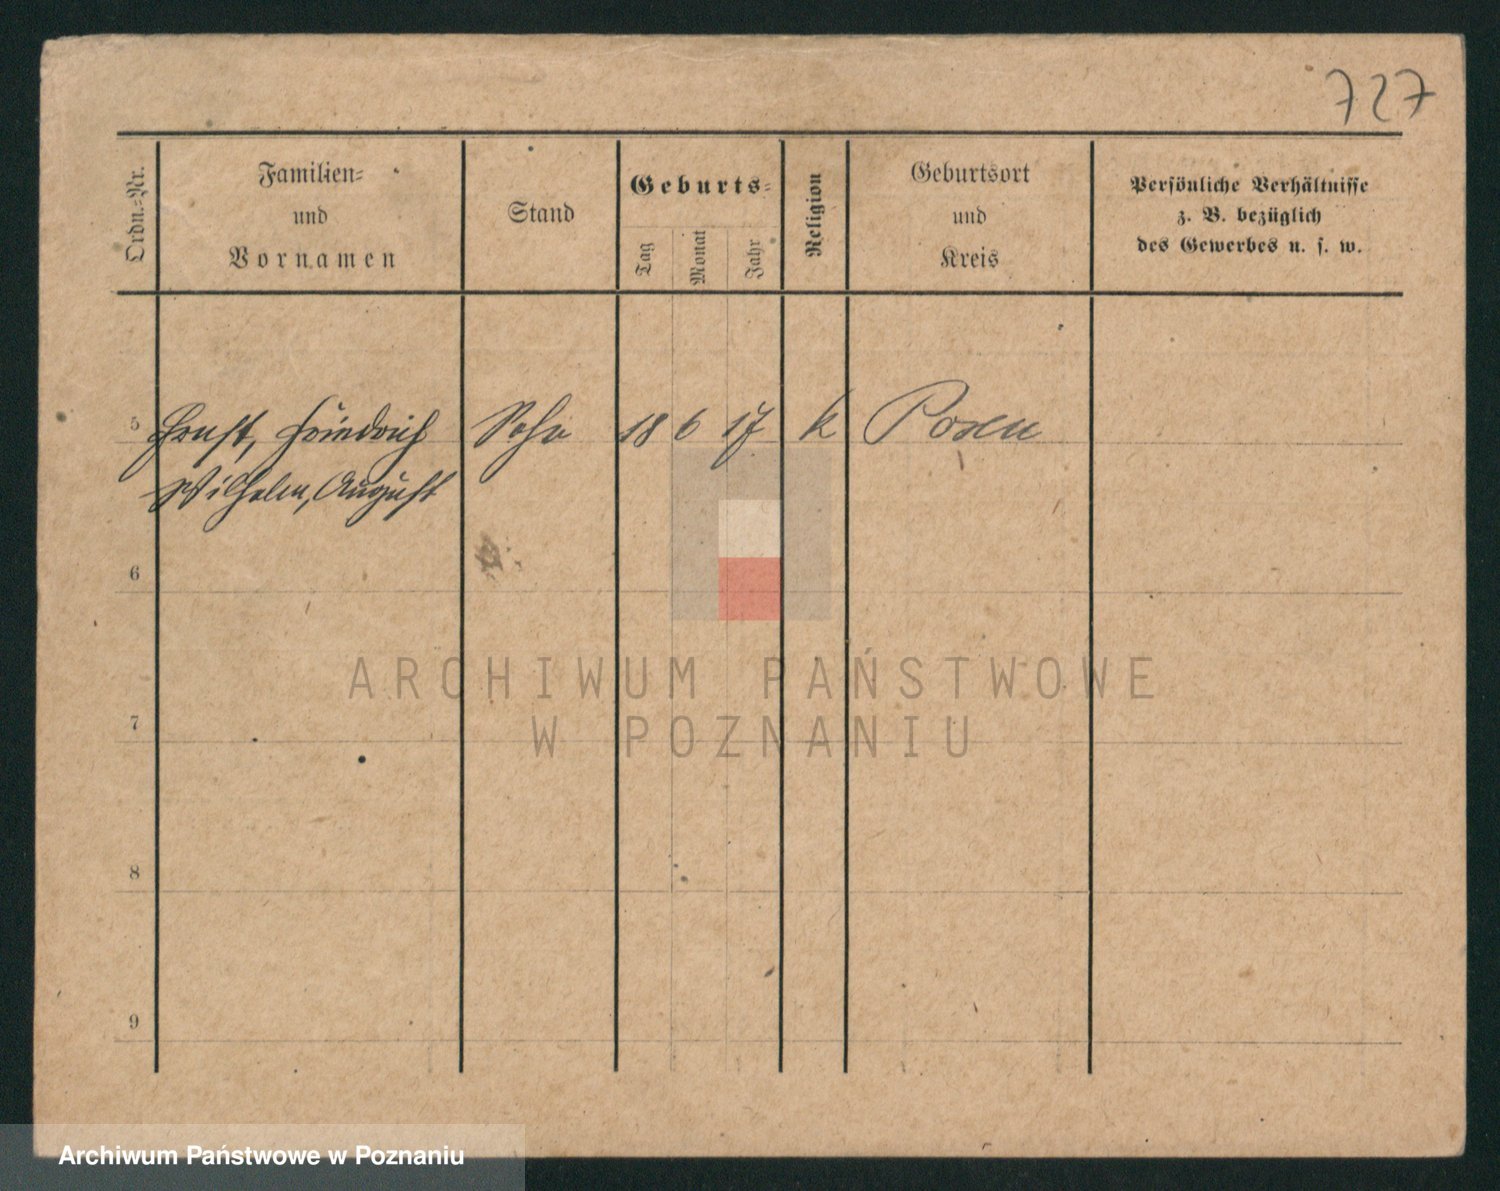 727
Ordn.-Nr.
Familien-
und
Vornamen
Stand
Geburts-
Tag
Monat
Jahr
Religion
Geburtsort
und
Kreis
Persönliche Verhältnisse
z. B. bezüglich
des Gewerbes u. s. w.
5 Ernst, Friedrich Sohn 18 6 17 k Posen
Wilhelm, August
6
7
8
9
ARCHIWUM PAŃSTWOWE
W POZNANIU
Archiwum Państwowe w Poznaniu